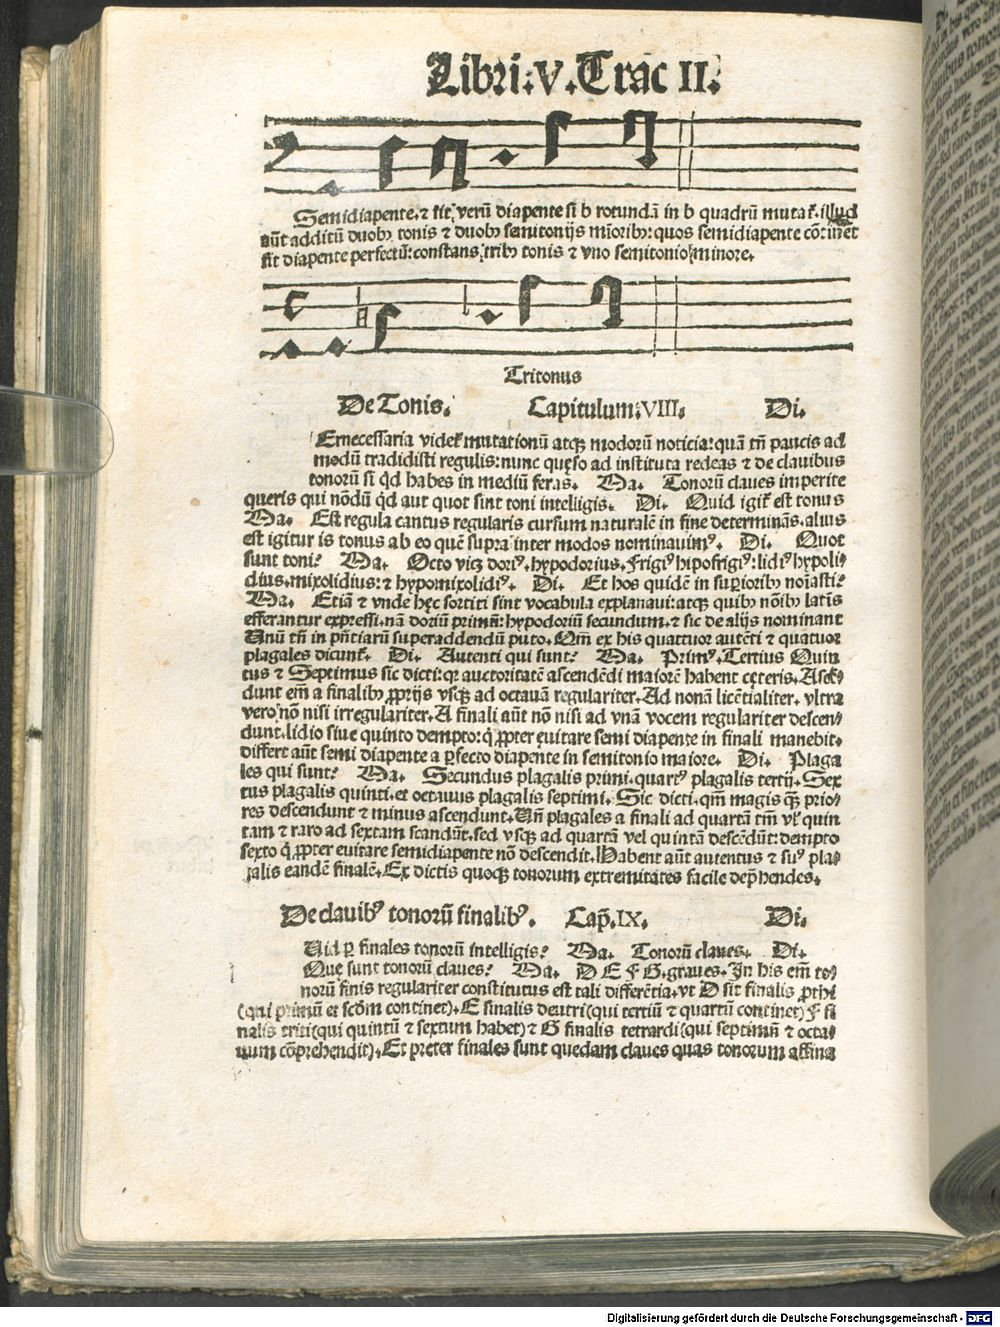 Libri: V. Trac II.
Semidiapente. ⁊ fit verū diapente si b rotundā in b quadrū mutat̄. illud
aūt additū duobꝫ tonis ⁊ duobꝫ semitonijs mīoribꝫ: quos semidiapente cōtinet
fit diapente perfectū: constans tribꝫ tonis ⁊ vno semitonio minore.
Tritonus
De Tonis. Capitulum: VIII. Di.
Ernecessaria videt̄ mutationū atqꝫ modorū noticia: quā tn̄ paucis ad
modū tradidisti regulis: nunc quęso ad instituta redeas ⁊ de clauibus
tonorū si qd̄ habes in mediū feras. Ma. Tonorū claues imperite
queris qui nōdū qd̄ aut quot sint toni intelligis. Di. Quid igit̄ est tonus
Ma. Est regula cantus regularis cursum naturalē in fine determinās. alius
est igitur is tonus ab eo quē supra inter modos nominauimꝰ. Di. Quot
sunt toni? Ma. Octo vicꝫ doriꝰ. hypodorius. Frigiꝰ hipofrigiꝰ: lidiꝰ hypoli-
dius. mixolidius: ⁊ hypomixolidiꝰ. Di. Et hos quidē in suꝑioribꝫ noīasti?
Ma. Etiā ⁊ vnde hęc sortiti sint vocabula explanaui: atqꝫ quibꝫ nōibꝫ latīs
efferantur expressi. nā doriū primū: hypodoriū secundum. ⁊ sic de alijs nominant
Unū tn̄ in pn̄tiarū superaddendū puto. Qm̄ ex his quattuor autēti ⁊ quatuor
plagales dicunt̄. Di. Autenti qui sunt? Ma. Primꝰ. Tertius Quin
tus ⁊ Septimus sic dicti: qꝛ auctoritatē ascendēdi maiorē habent cęteris. Ascē-
dunt em̄ a finalibꝫ ꝓprijs vsqꝫ ad octauā regulariter. Ad nonā licētialiter. vltra
vero nō nisi irregulariter. A finali aūt nō nisi ad vnā vocem regulariter descen-
dunt. lidio siue quinto dempto: q̄ ꝓpter euitare semi diapente in finali manebit.
differt aūt semi diapente a ꝑfecto diapente in semitonio maiore. Di. Plaga
les qui sunt? Ma. Secundus plagalis primi. quartꝰ plagalis tertij. Sex
tus plagalis quinti. et octauus plagalis septimi. Sic dicti. qm̄ magis qꝫ prio-
res descendunt ⁊ minus ascendunt. Un̄ plagales a finali ad quartā tm̄ vl̓ quin
tam ⁊ raro ad sextam scandūt. sed vsqꝫ ad quartā vel quintā descēdūt: dempto
sexto q̄ ꝓpter euitare semidiapente nō descendit. Habent aūt autentus ⁊ suꝰ pla-
galis eandē finalē. Ex dictis quoqꝫ tonorum extremitates facile dep̄hendes.
De clauibꝰ tonorū finalibꝰ. Cap̄. IX. Di.
Uid ꝑ finales tonorū intelligis? Ma. Tonorū claues. Di.
Quę sunt tonorū claues? Ma. D E F G. graues. In his em̄ to-
norū finis regulariter constitutus est tali differētia. vt D sit finalis ꝓthi
(qui primū et scd̄m continet). E finalis deutri (qui tertiū ⁊ quartū continet) F fi
nalis triti (qui quintū ⁊ sextum habet) ⁊ G finalis tetrardi (qui septimū ⁊ octa-
uum cōprehendit). Et preter finales sunt quedam claues quas tonorum affina
Digitalisierung gefördert durch die Deutsche Forschungsgemeinschaft - DFG